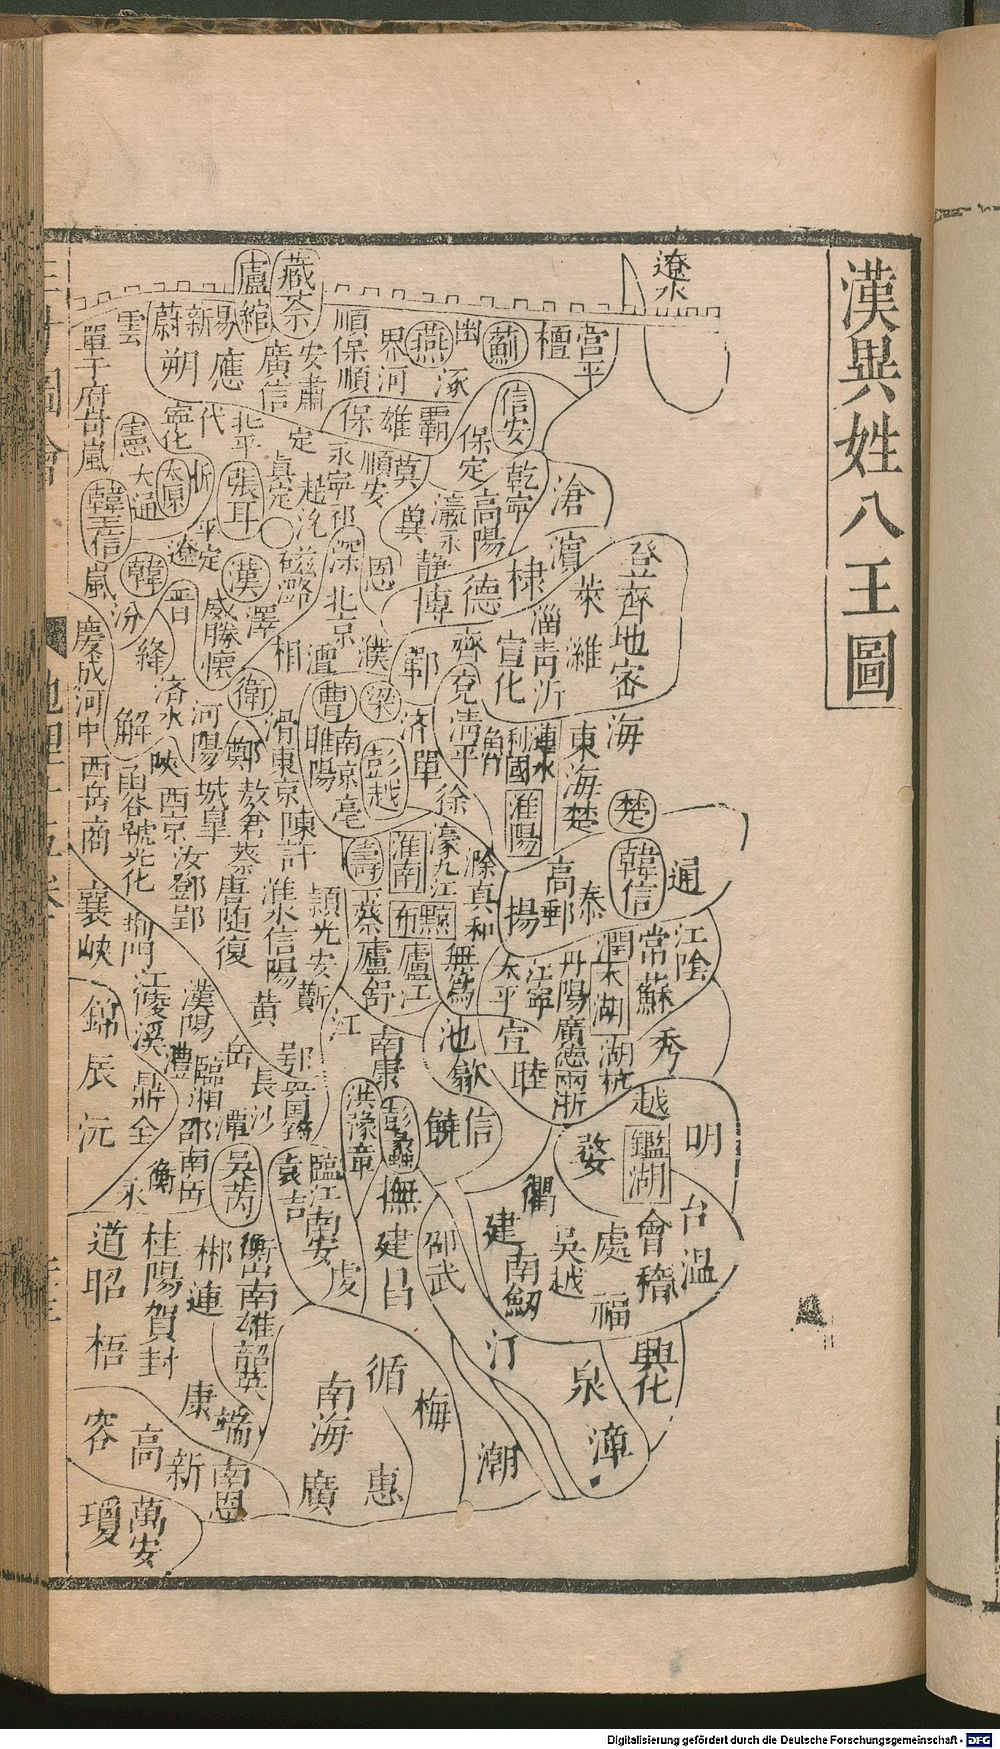 漢異姓八王圖
遼水
營平
檀
薊
幽
燕
涿
界河
順保順
臧荼
安肅
廣信
盧綰
易
應
新
蔚
朔
雲
單于府
岢嵐
信安
保定
霸
雄
保
定
北平
代
寧化
憲
乾寧
高陽
滄
濱
棣
德
順安
永寧
真定
張耳
忻
太原
大通
韓王信
嵐
韓
平定
遼
漢
磁
潞
深
恩
靜
博
北京
登
齊地
密
萊
濰
淄青沂
宣化
齊
兗
清平
鄆
濮
澶
相
澤
威勝
懷
晉
汾
絳
慶成
河中
解
濟水
衛
曹
梁
濟
單
徐
南京
亳
睢陽
彭越
滑
東京
陳
許
鄭
河陽
陝
西京
汝
鄧
郢
蔡
唐
隨
復
西岳
商
函谷
虢
光化
襄
峽
海
東海
楚
漣水
利國
淮陽
楚
韓信
通
泰
高郵
揚
滁
真
和
濠
九江
淮南
壽
黥
布
蔡
廬
舒
廬江
無為
潁
光
安
蘄
淮水
信陽
黃
荊門
江陵
漢陽
江陰
常
蘇
潤
太湖
丹陽
廣德
兩浙
江寧
太平
宣
睦
湖
杭
秀
越
明
台
溫
鑑湖
會稽
婺
處
福
衢
吳越
建
南劍
池
歙
饒
信
江
南康
洪
豫章
彭蠡
撫
建昌
邵武
鄂
岳
長沙
潭
吳芮
袁
吉
臨江
南安
虔
澧
臨湘
邵
南岳
衡
永
鼎
全
錦
辰
沅
道
昭
梧
桂陽
賀
封
郴
連
南雄
韶
英
康
端
容
高
新
南恩
瓊
萬安
南海
廣
循
惠
梅
潮
汀
泉
漳
興化
Digitalisierung gefördert durch die Deutsche Forschungsgemeinschaft - DFG